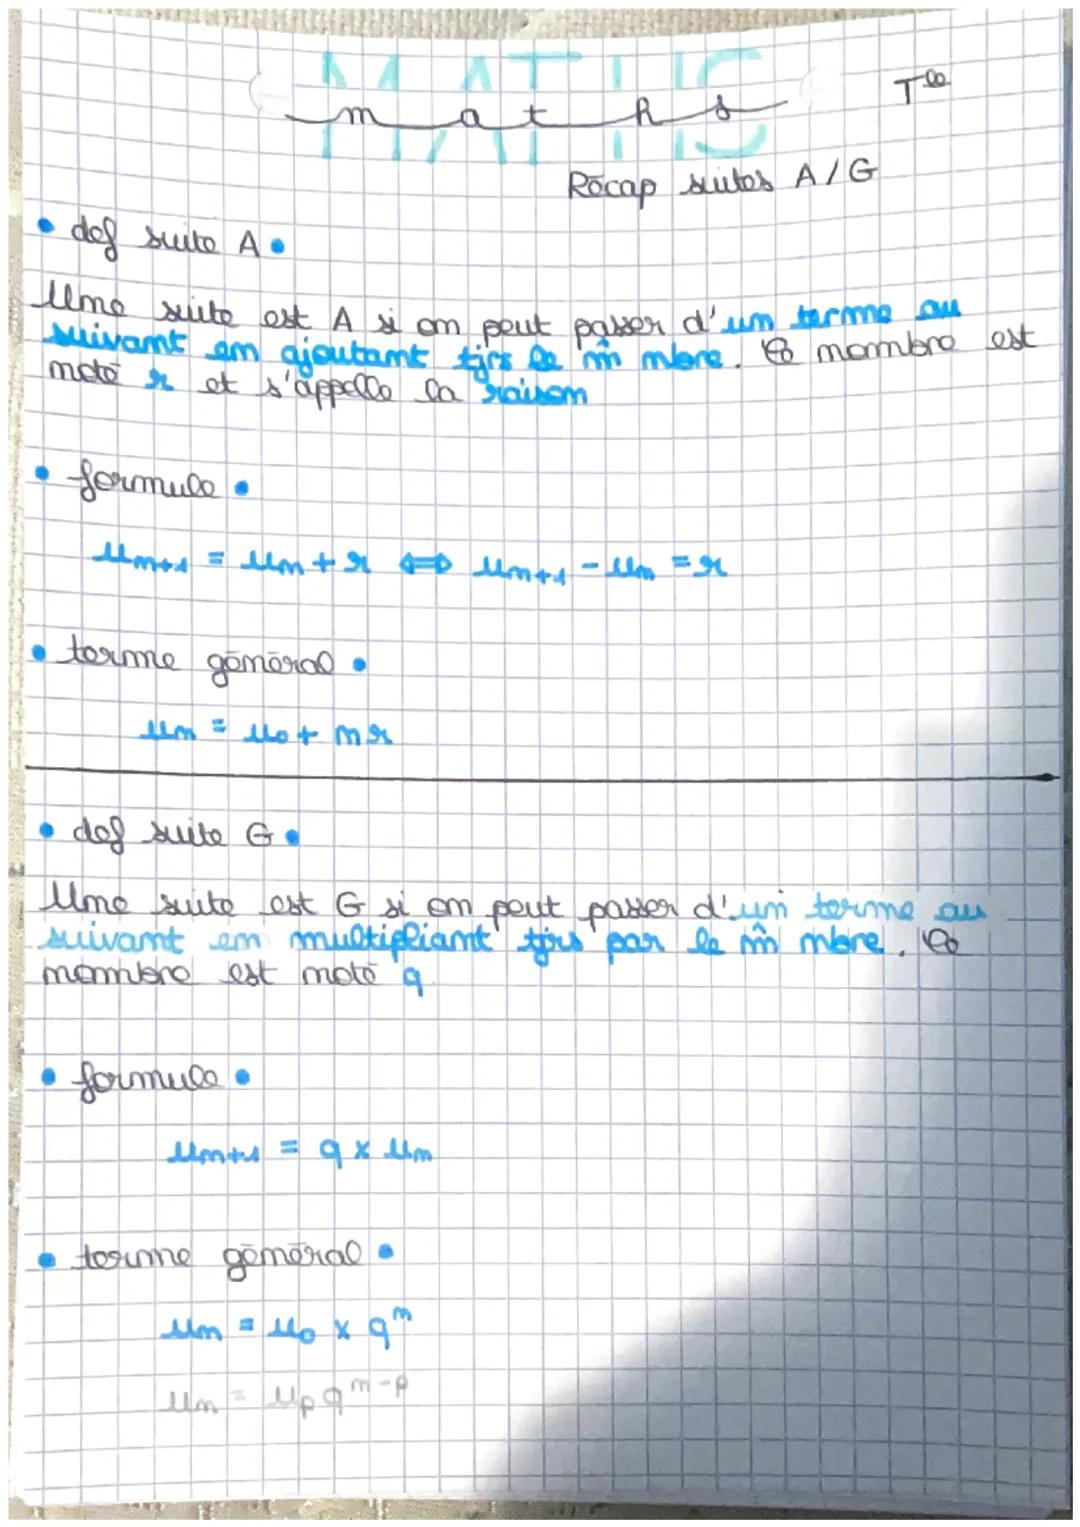 MATHS
maths
Tle
Récap suites A/G
• def suite A •
Une suite est A si on peut passer d'un terme au
suivant en ajoutant tjrs le m̂ nbre. Ce nombre est
noté r et s'appelle la raison
• formule •
Un+1 = Un + r ⟺ Un+1 - Un = r
• terme général •
Un = U0 + nr
• def suite G •
Une suite est G si on peut passer d'un terme au
suivant en multipliant tjrs par le m̂ nbre. Ce
nombre est noté q
• formule •
Un+1 = q x Un
• terme général •
Un = U0 x q^n
Un = Up q^n-p